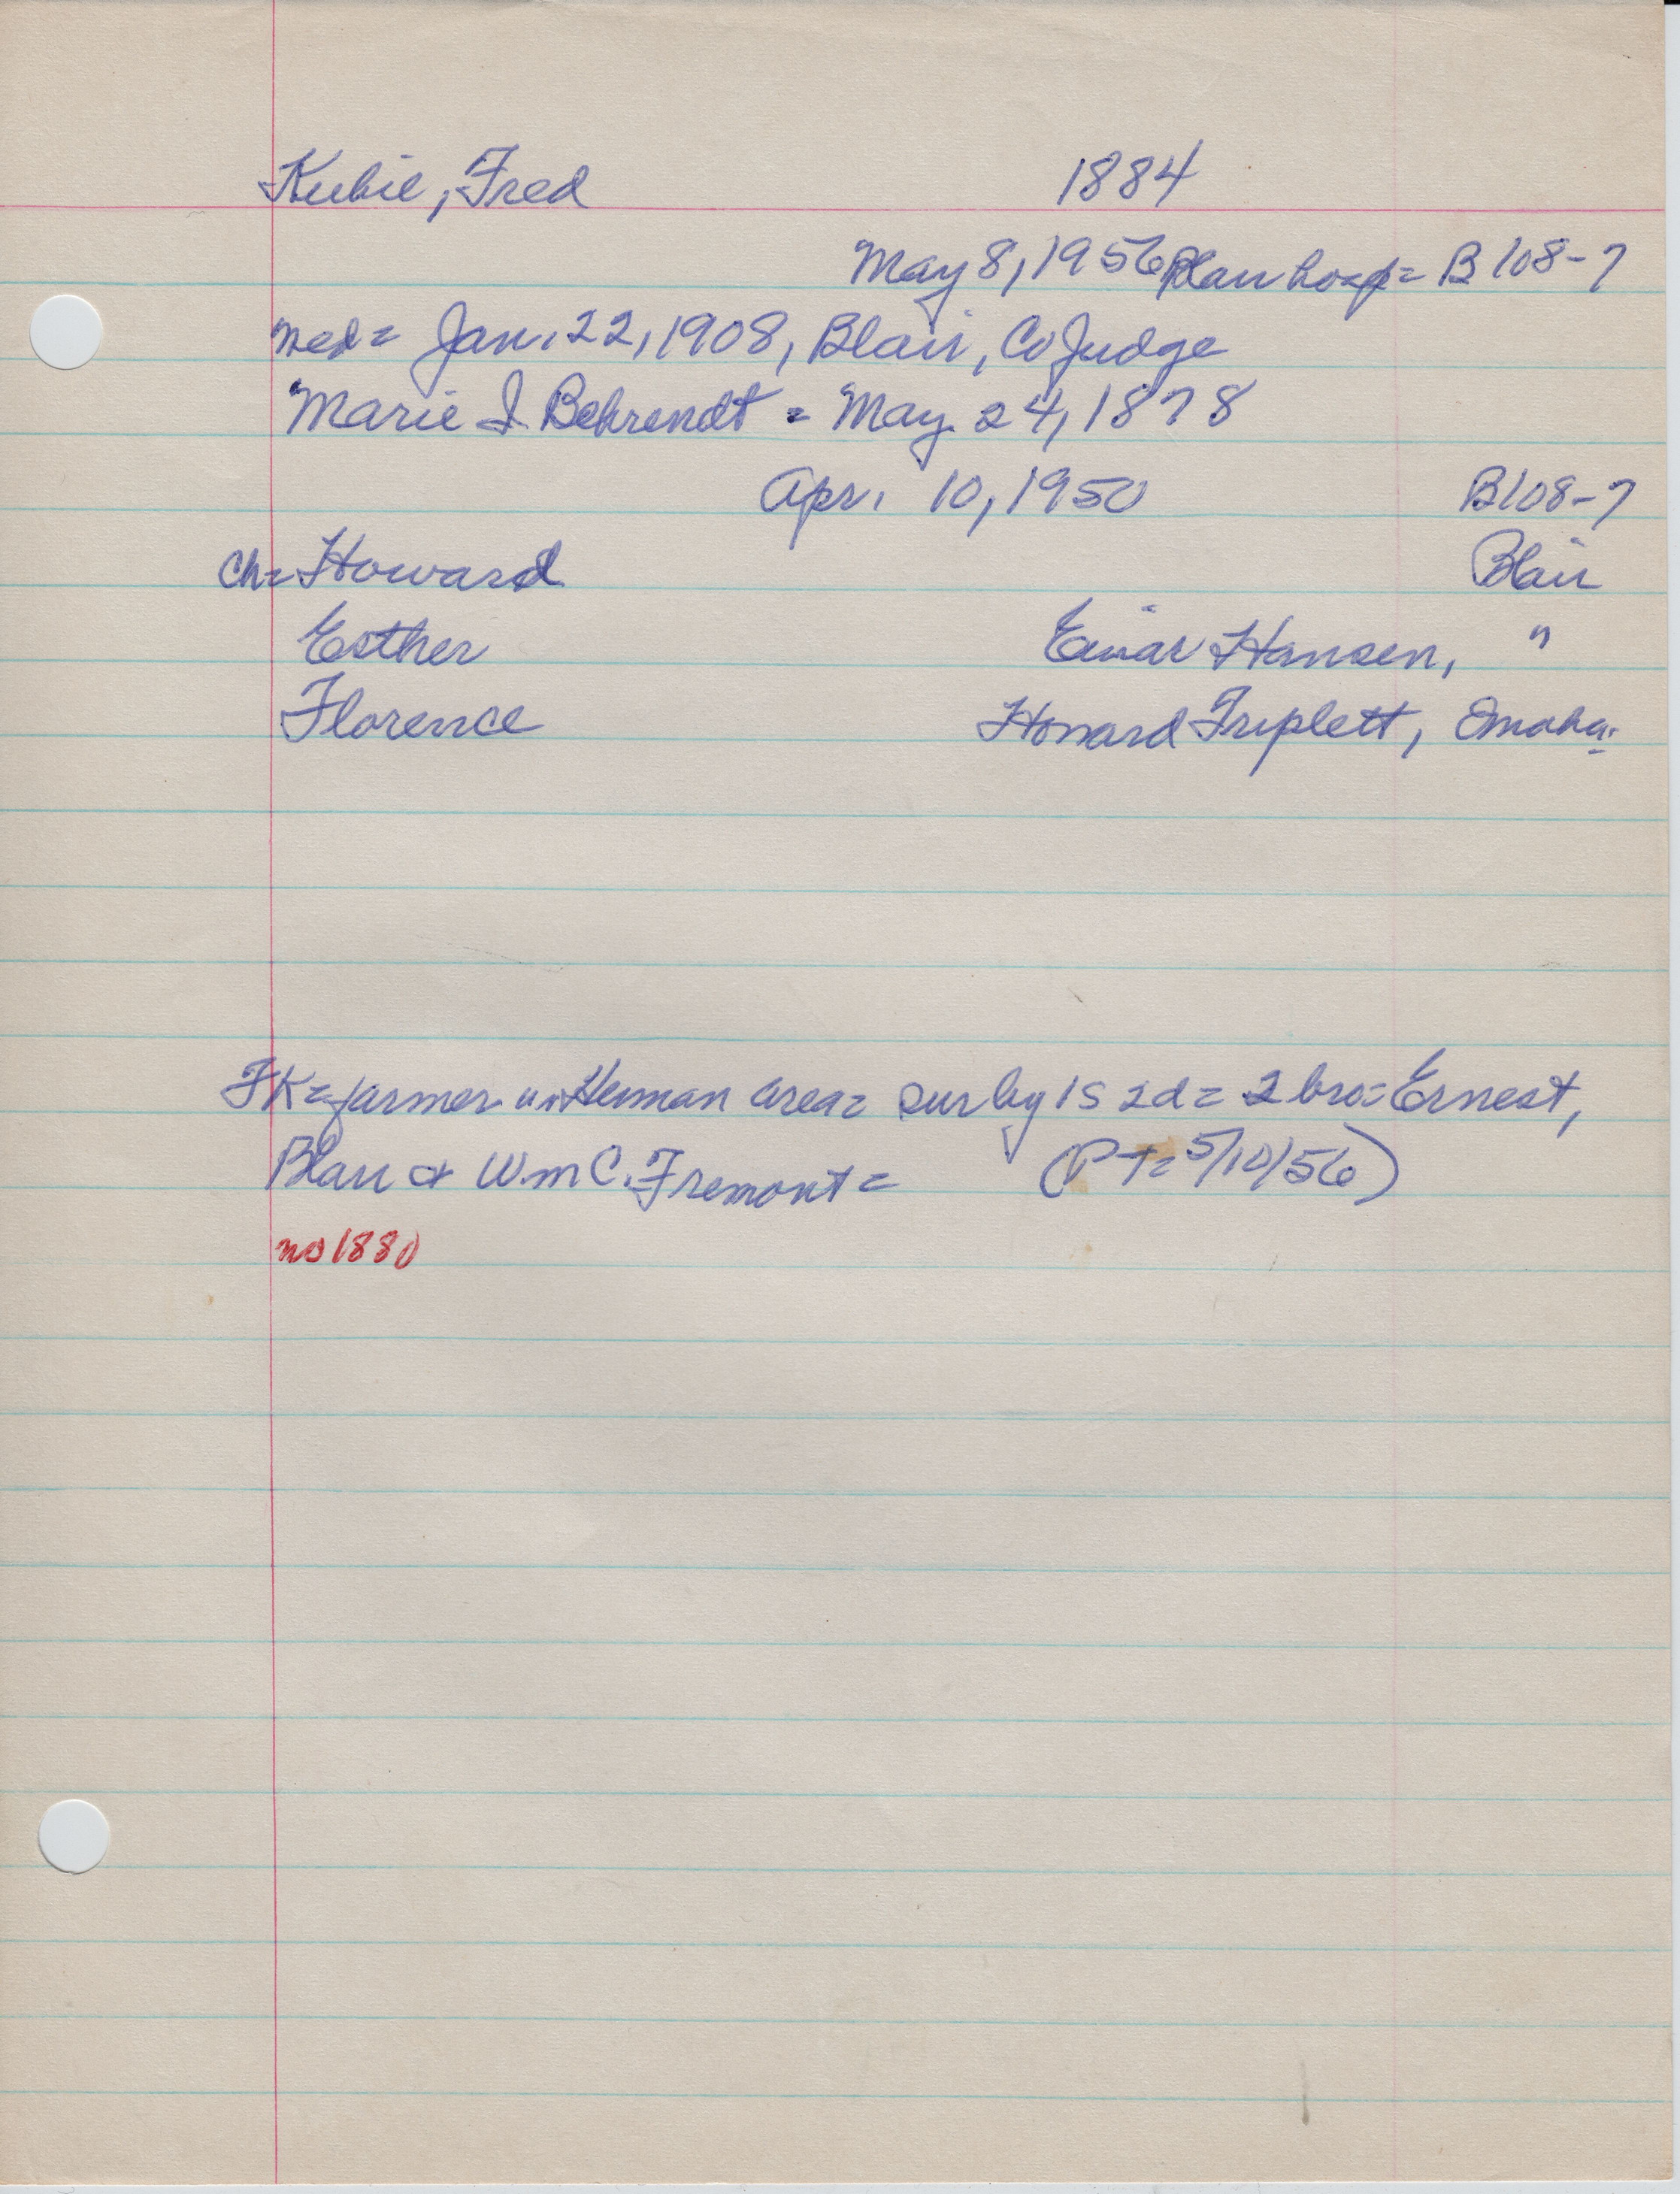 Kubie, Fred 1884
May 8, 1956 Blair hosp = B 108-7
med = Jan. 22, 1908, Blair, Co Judge
Marie I. Behrendt = May 24, 1878
Apr. 10, 1950 B108-7
Ch = Howard Blair
Esther Einar Hansen, "
Florence Howard Triplett, Omaha.
FK = farmer in Herman area = sur by 1s 2d = 2 bro = Ernest,
Blair & Wm C. Fremont = (PT = 5/10/56)
no 1880